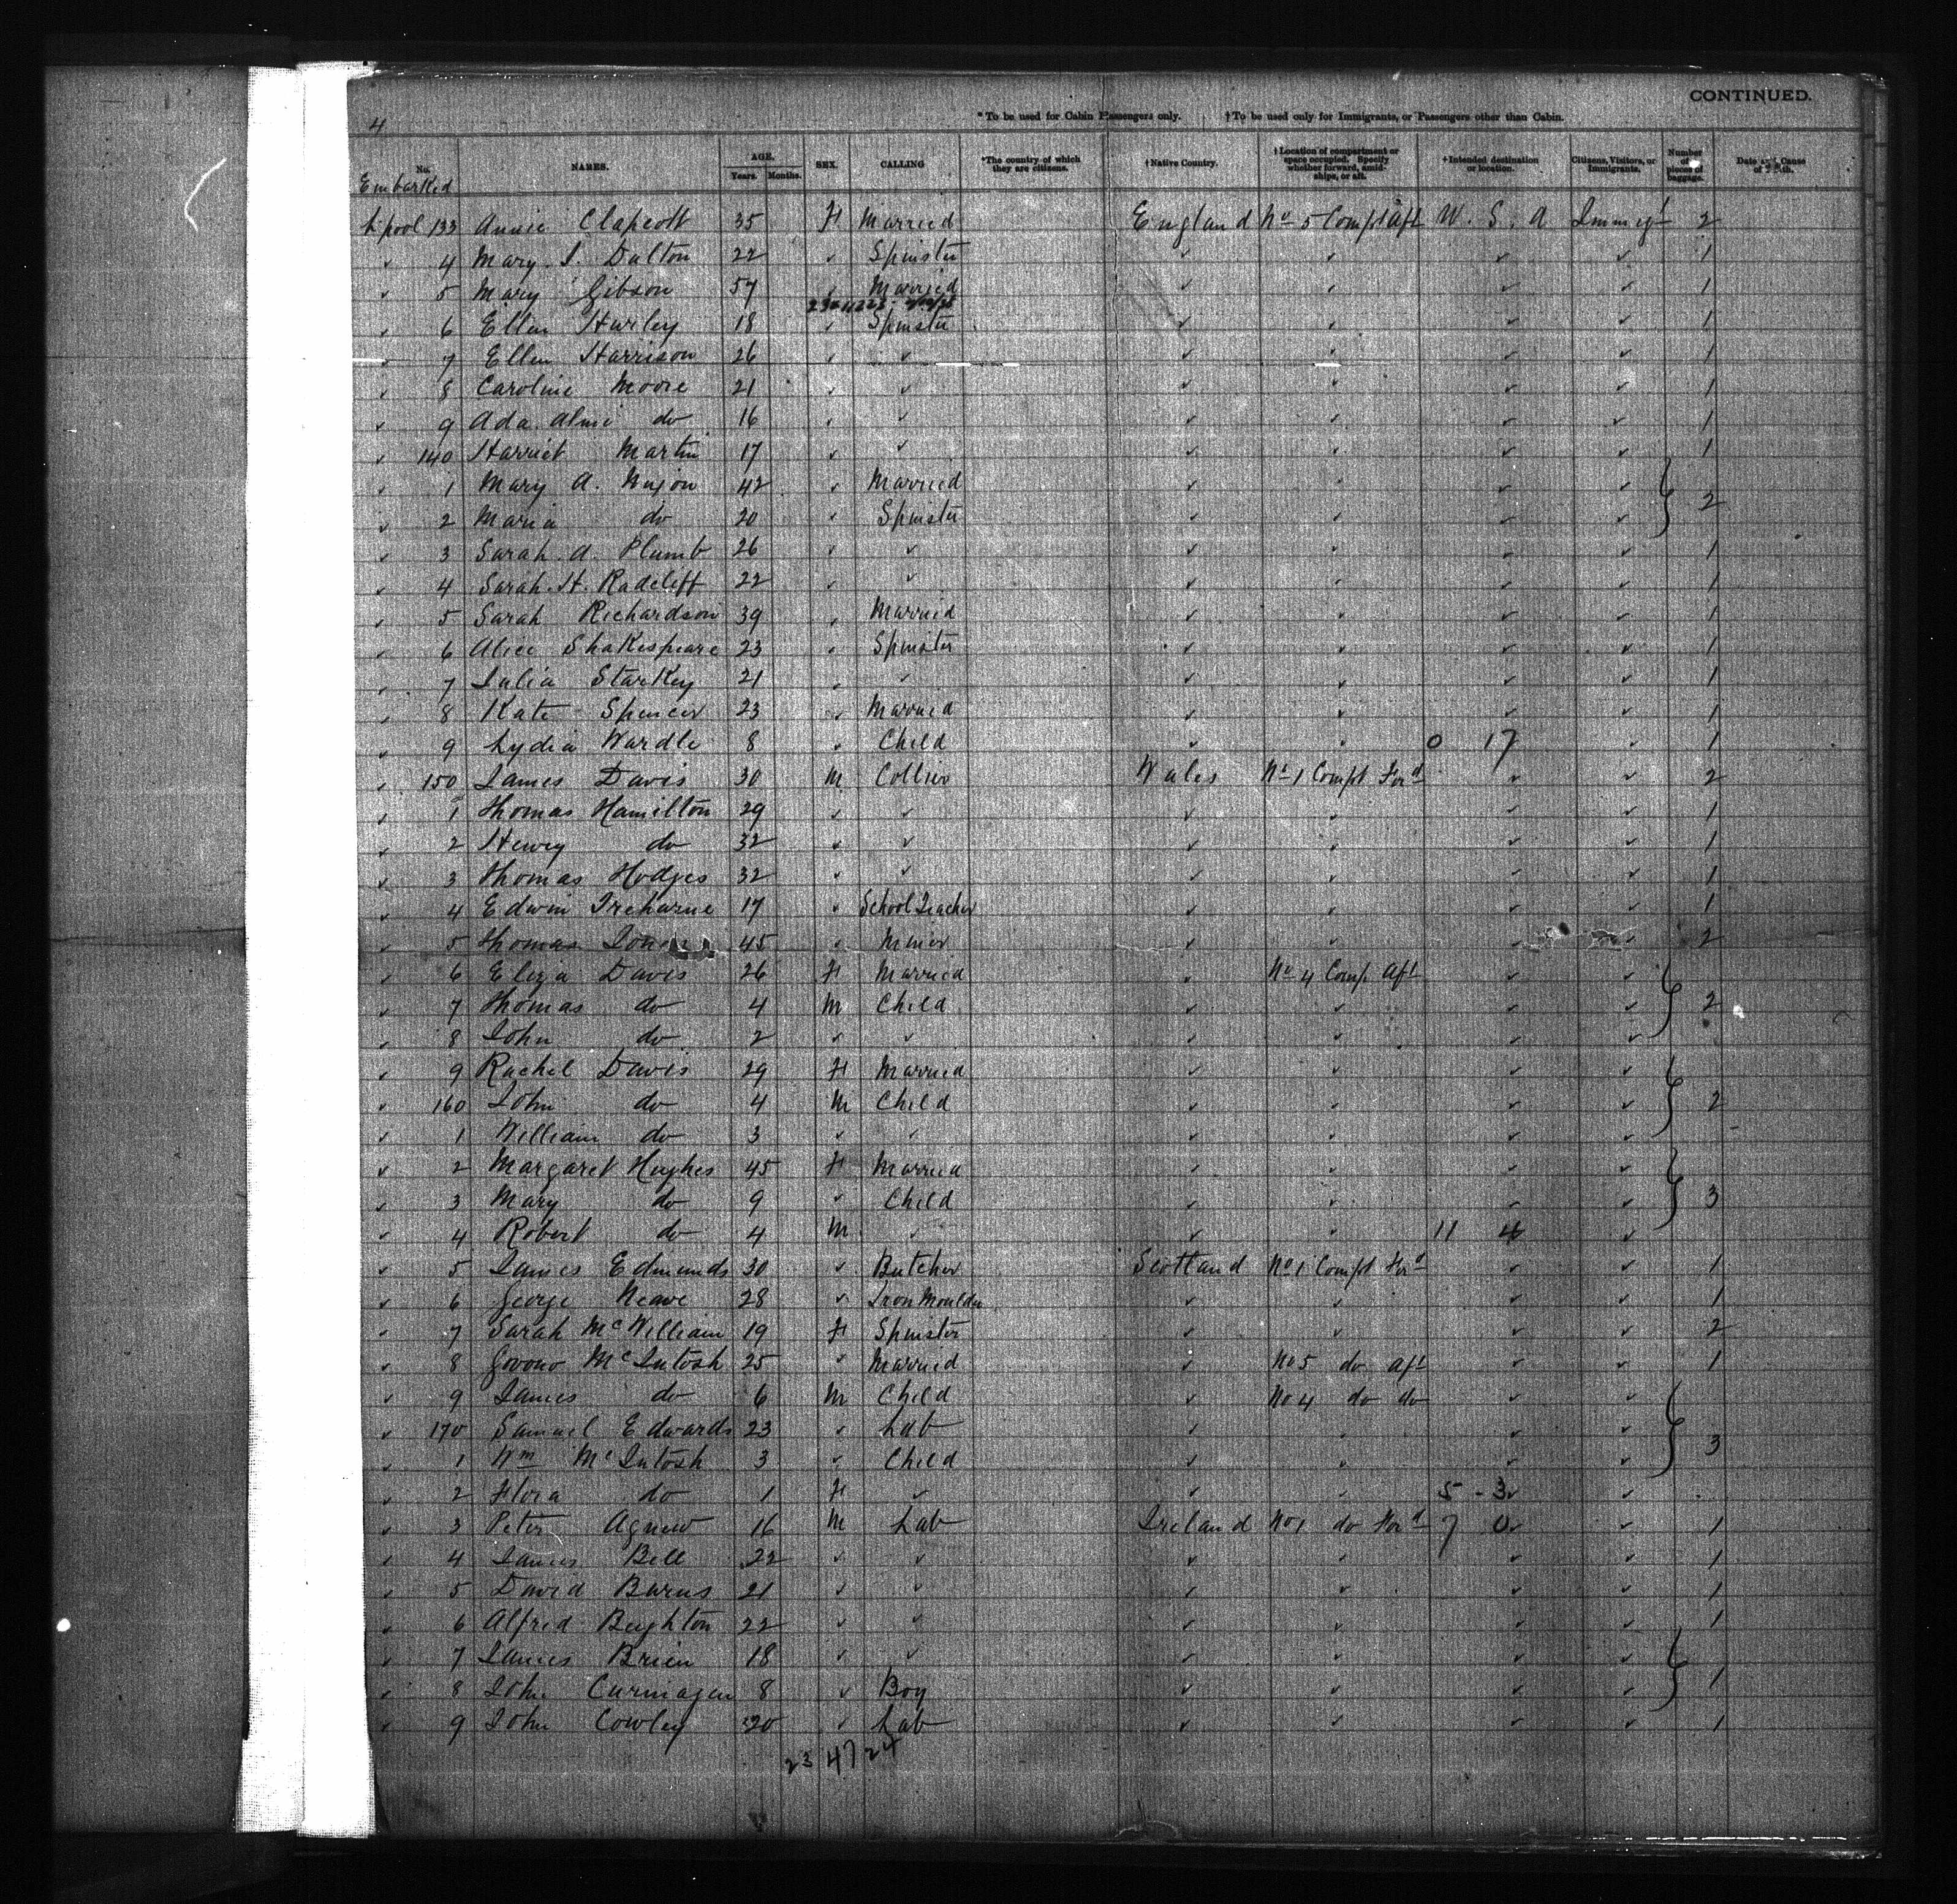 CONTINUED.
4 * To be used for Cabin Passengers only. † To be used only for Immigrants, or Passengers other than Cabin.
No. NAMES. AGE. Years. Months. SEX. CALLING *The country of which they are citizens. †Native Country. †Location of compartment or space occupied. Specify whether forward, amid-ships, or aft. †Intended destination or location. Citizens, Visitors, or Immigrants. Number of pieces of baggage. Date and Cause of Death.
Embarked
L'pool 133 Annie Clapcott 35 F Married England No 5 Compt Aft U. S. A Immigt 2
✓ 4 Mary J. Dalton 22 ✓ Spinster ✓ ✓ ✓ ✓ 1
✓ 5 Mary Gibson 57 ✓ Married ✓ ✓ ✓ ✓ 1
✓ 6 Ellen Hurley 18 ✓ Spinster ✓ ✓ ✓ ✓ 1
✓ 7 Ellen Harrison 26 ✓ ✓ ✓ ✓ ✓ ✓ 1
✓ 8 Caroline Moore 21 ✓ ✓ ✓ ✓ ✓ ✓ 1
✓ 9 Ada do 16 ✓ ✓ ✓ ✓ ✓ ✓ 1
✓ 140 Harriet Martin 17 ✓ ✓ ✓ ✓ ✓ ✓ 1
✓ 1 Mary A. Nixon 42 ✓ Married ✓ ✓ ✓ ✓
✓ 2 Maria do 20 ✓ Spinster ✓ ✓ ✓ ✓ 2
✓ 3 Sarah A. Plumb 26 ✓ ✓ ✓ ✓ ✓ ✓ 1
✓ 4 Sarah H. Radcliff 22 ✓ ✓ ✓ ✓ ✓ ✓ 1
✓ 5 Sarah Richardson 39 ✓ Married ✓ ✓ ✓ ✓ 1
✓ 6 Alice Shakespeare 23 ✓ Spinster ✓ ✓ ✓ ✓ 1
✓ 7 Julia Starkey 21 ✓ ✓ ✓ ✓ ✓ ✓ 1
✓ 8 Kate Spencer 23 ✓ Married ✓ ✓ ✓ ✓ 1
✓ 9 Lydia Wardle 8 ✓ Child ✓ ✓ 0 17 ✓ 1
✓ 150 James Davis 30 M Collier Wales No 1 Compt Ford ✓ ✓ 2
✓ 1 Thomas Hamilton 29 ✓ ✓ ✓ ✓ ✓ ✓ 1
✓ 2 Henry do 32 ✓ ✓ ✓ ✓ ✓ ✓ 1
✓ 3 Thomas Hodges 32 ✓ ✓ ✓ ✓ ✓ ✓ 1
✓ 4 Edwin Treharne 17 ✓ School Teacher ✓ ✓ ✓ ✓ 1
✓ 5 Thomas 45 ✓ Miner ✓ ✓ ✓ ✓ 2
✓ 6 Eliza Davis 26 F Married ✓ No 4 Comp. Aft ✓ ✓
✓ 7 Thomas do 4 M Child ✓ ✓ ✓ ✓ 2
✓ 8 John do 2 ✓ ✓ ✓ ✓ ✓ ✓
✓ 9 Rachel Davis 29 F Married ✓ ✓ ✓ ✓
✓ 160 John do 4 M Child ✓ ✓ ✓ ✓ 2
✓ 1 William do 3 ✓ ✓ ✓ ✓ ✓ ✓
✓ 2 Margaret Hughes 45 F Married ✓ ✓ ✓ ✓
✓ 3 Mary do 9 ✓ Child ✓ ✓ ✓ ✓ 3
✓ 4 Robert do 4 M ✓ ✓ ✓ 11 4 ✓
✓ 5 James Edmunds 30 ✓ Butcher Scotland No 1 Compt Ford ✓ ✓ 1
✓ 6 George Neave 28 ✓ Iron Moulder ✓ ✓ ✓ ✓ 1
✓ 7 Sarah McWilliam 19 F Spinster ✓ ✓ ✓ ✓ 2
✓ 8 McIntosh 25 ✓ Married ✓ No 5 do Aft ✓ ✓ 1
✓ 9 James do 6 M Child ✓ No 4 do do ✓ ✓
✓ 170 Samuel Edwards 23 ✓ Lab ✓ ✓ ✓ ✓ 3
✓ 1 Wm McIntosh 3 ✓ Child ✓ ✓ ✓ ✓
✓ 2 Flora do 1 F ✓ ✓ ✓ 5 - 3 ✓
✓ 3 Peter Agnew 16 M Lab Ireland No 1 do Ford 7 0 ✓ 1
✓ 4 James Bell 22 ✓ ✓ ✓ ✓ ✓ ✓ 1
✓ 5 David Burns 21 ✓ ✓ ✓ ✓ ✓ ✓ 1
✓ 6 Alfred Beighton 22 ✓ ✓ ✓ ✓ ✓ ✓ 1
✓ 7 James Brien 18 ✓ ✓ ✓ ✓ ✓ ✓
✓ 8 John 8 ✓ Boy ✓ ✓ ✓ ✓ 1
✓ 9 John Cowley 20 ✓ Lab ✓ ✓ ✓ ✓ 1
23 47 24